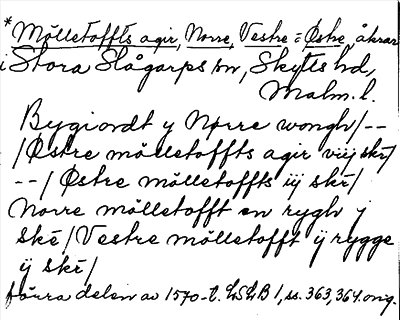 *Mölletoffts agir, Norre, Vestre = Østre, åkrar
i Stora Slågarps sn, Skytts hd,
Malm. l.
Bygiordt y Nørre wongh/--
/Østre mölletoffts agir viij skè/
--/Østre mölletoffts iij skè/
Norre mölletofft en rygh j
skè/Vestre mölletofft ij rygge
ij skè/
förra delen av 1570-t. LSLB 1, ss. 363, 364. orig.